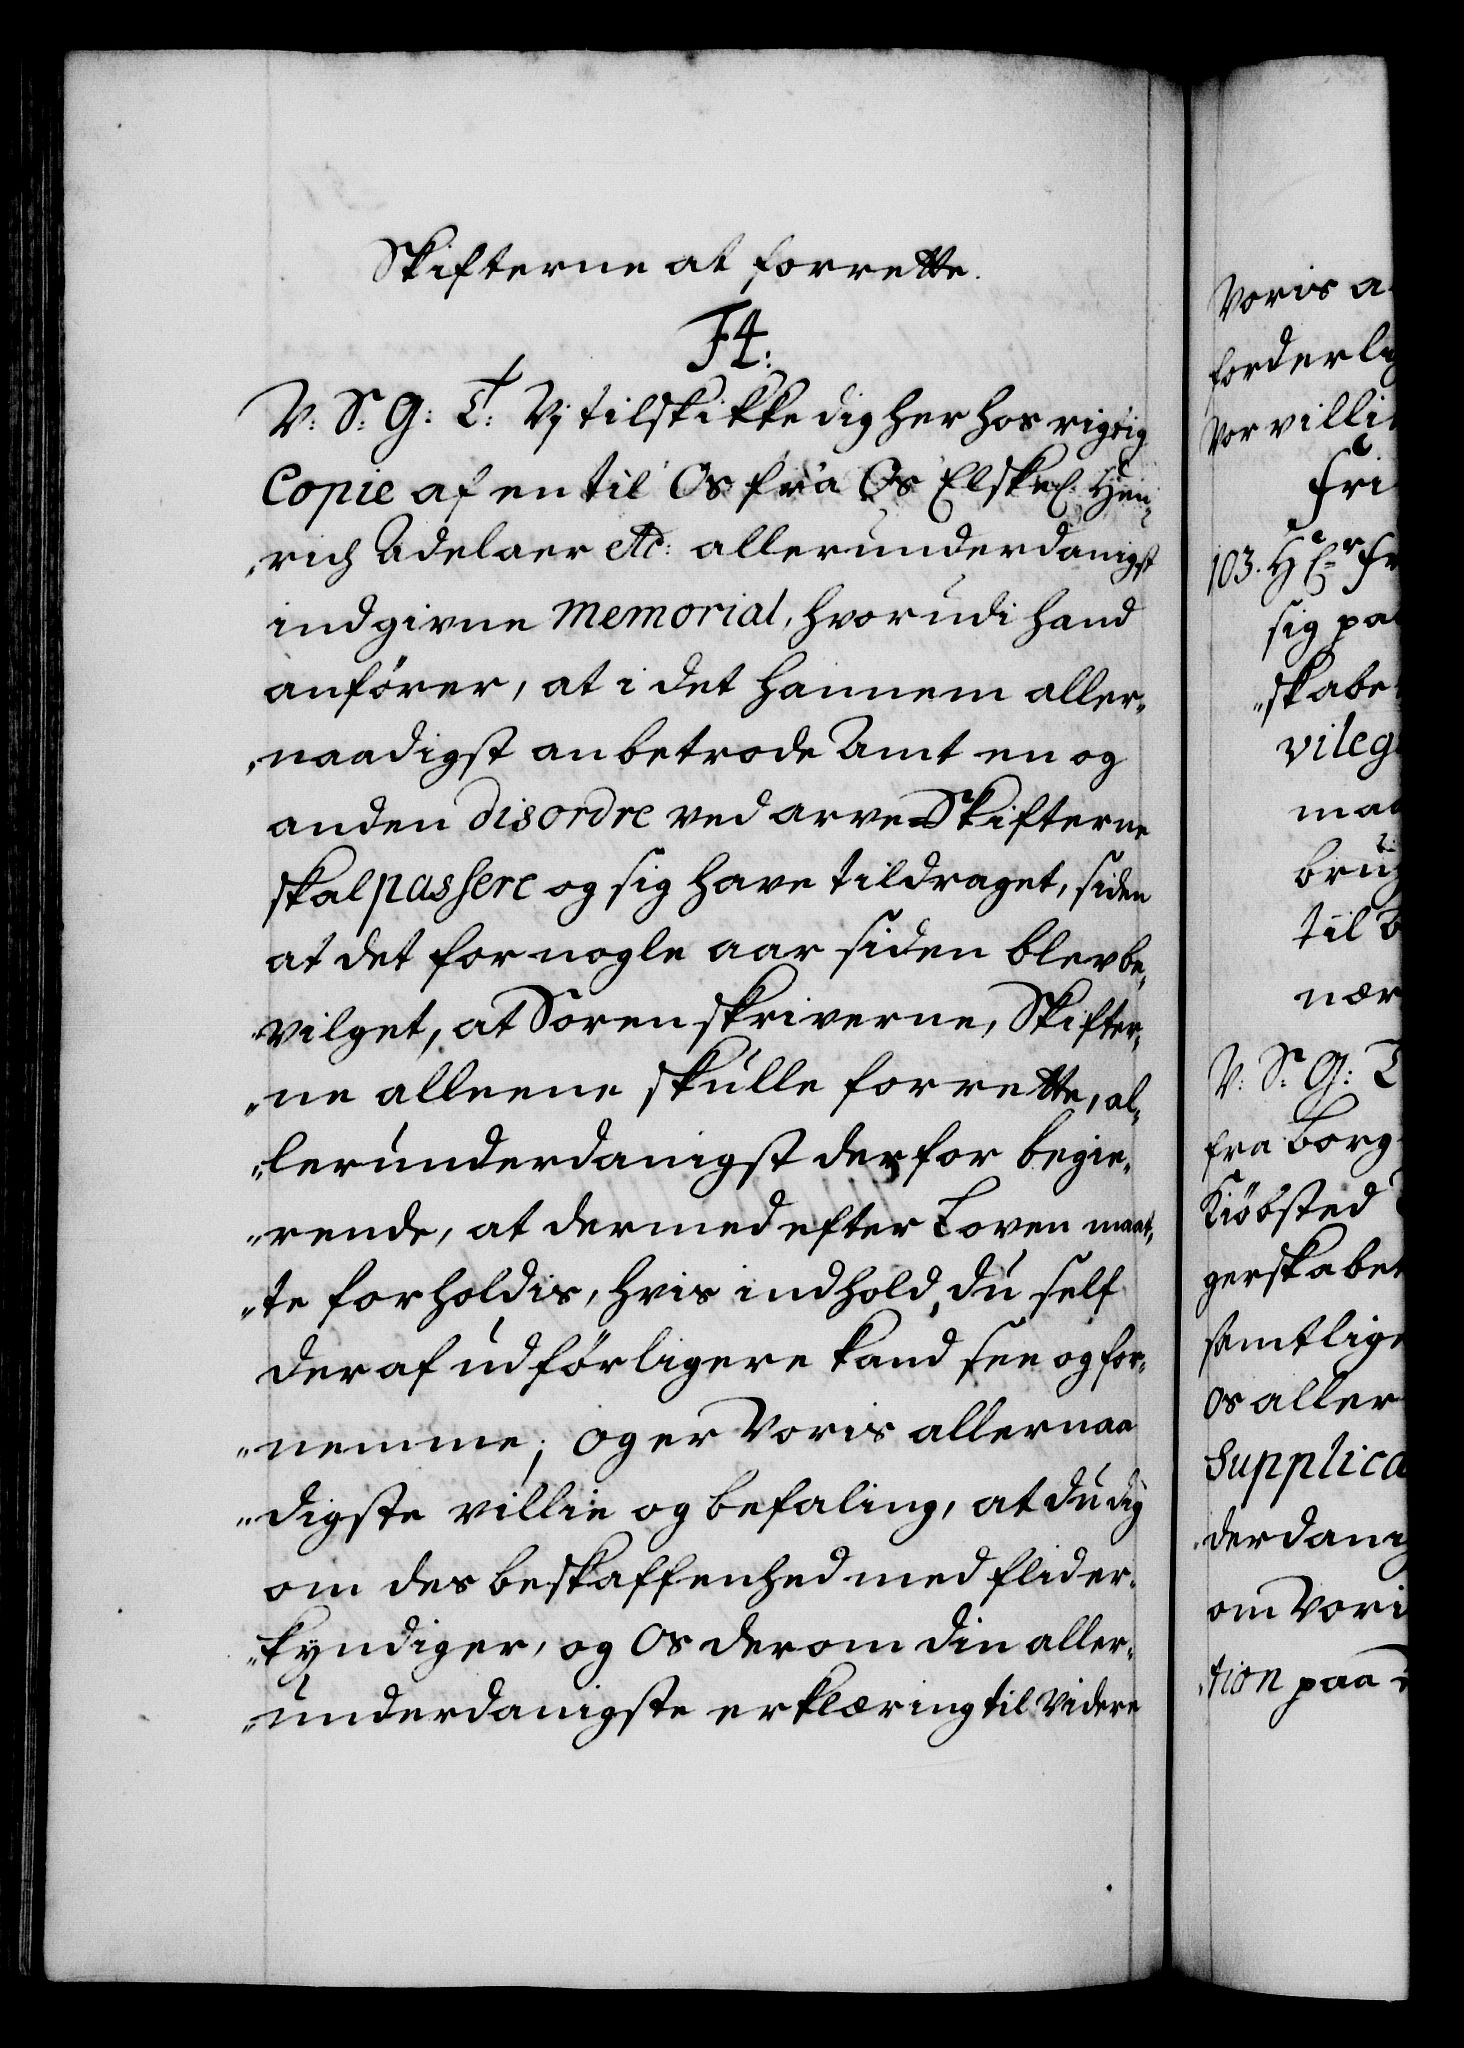 Skifterne at forrette.
F4:
V: S: G: T: Vj tilskikke dig her hos rigtig
Copie af en til Os fra Os Elskel: Hen¬
„rich Adelaer etc: allerunderdanigst
indgivne Memorial, hvorudi hand
anfører, at i det hannem aller„
„naadigst anbetrode Amt en og
anden disordre ved arve Skifterne
skal passere og sig have tildraget, siden
at det for nogle aar siden blev be„
„vilget, at Sorenskriverne, Skifter„
„ne alleene skulle forrette, al„
„lerunderdanigst derfor begie„
„rende, at dermed efter Loven maat„
„te forholdis, hvis indhold, du self
deraf udførligere kand see og for„
„nemme; og er Voris allernaa
„digste villie og befaling, at du dig
om des beskaffenhed med flid er„
„kyndiger, og Os derom din aller„
„underdanigste erklæring til videre
Voris a
forderlig
Vor villi
Fri
103. H E r Fr
sig paa
„skabe
vileg
maa
brug
til B
nær
V: S: G: T
fra Borg
Kiøbsted
gerskabet
samtlige
Os aller
Supplica
„derdanig
om Vori
„tion paa